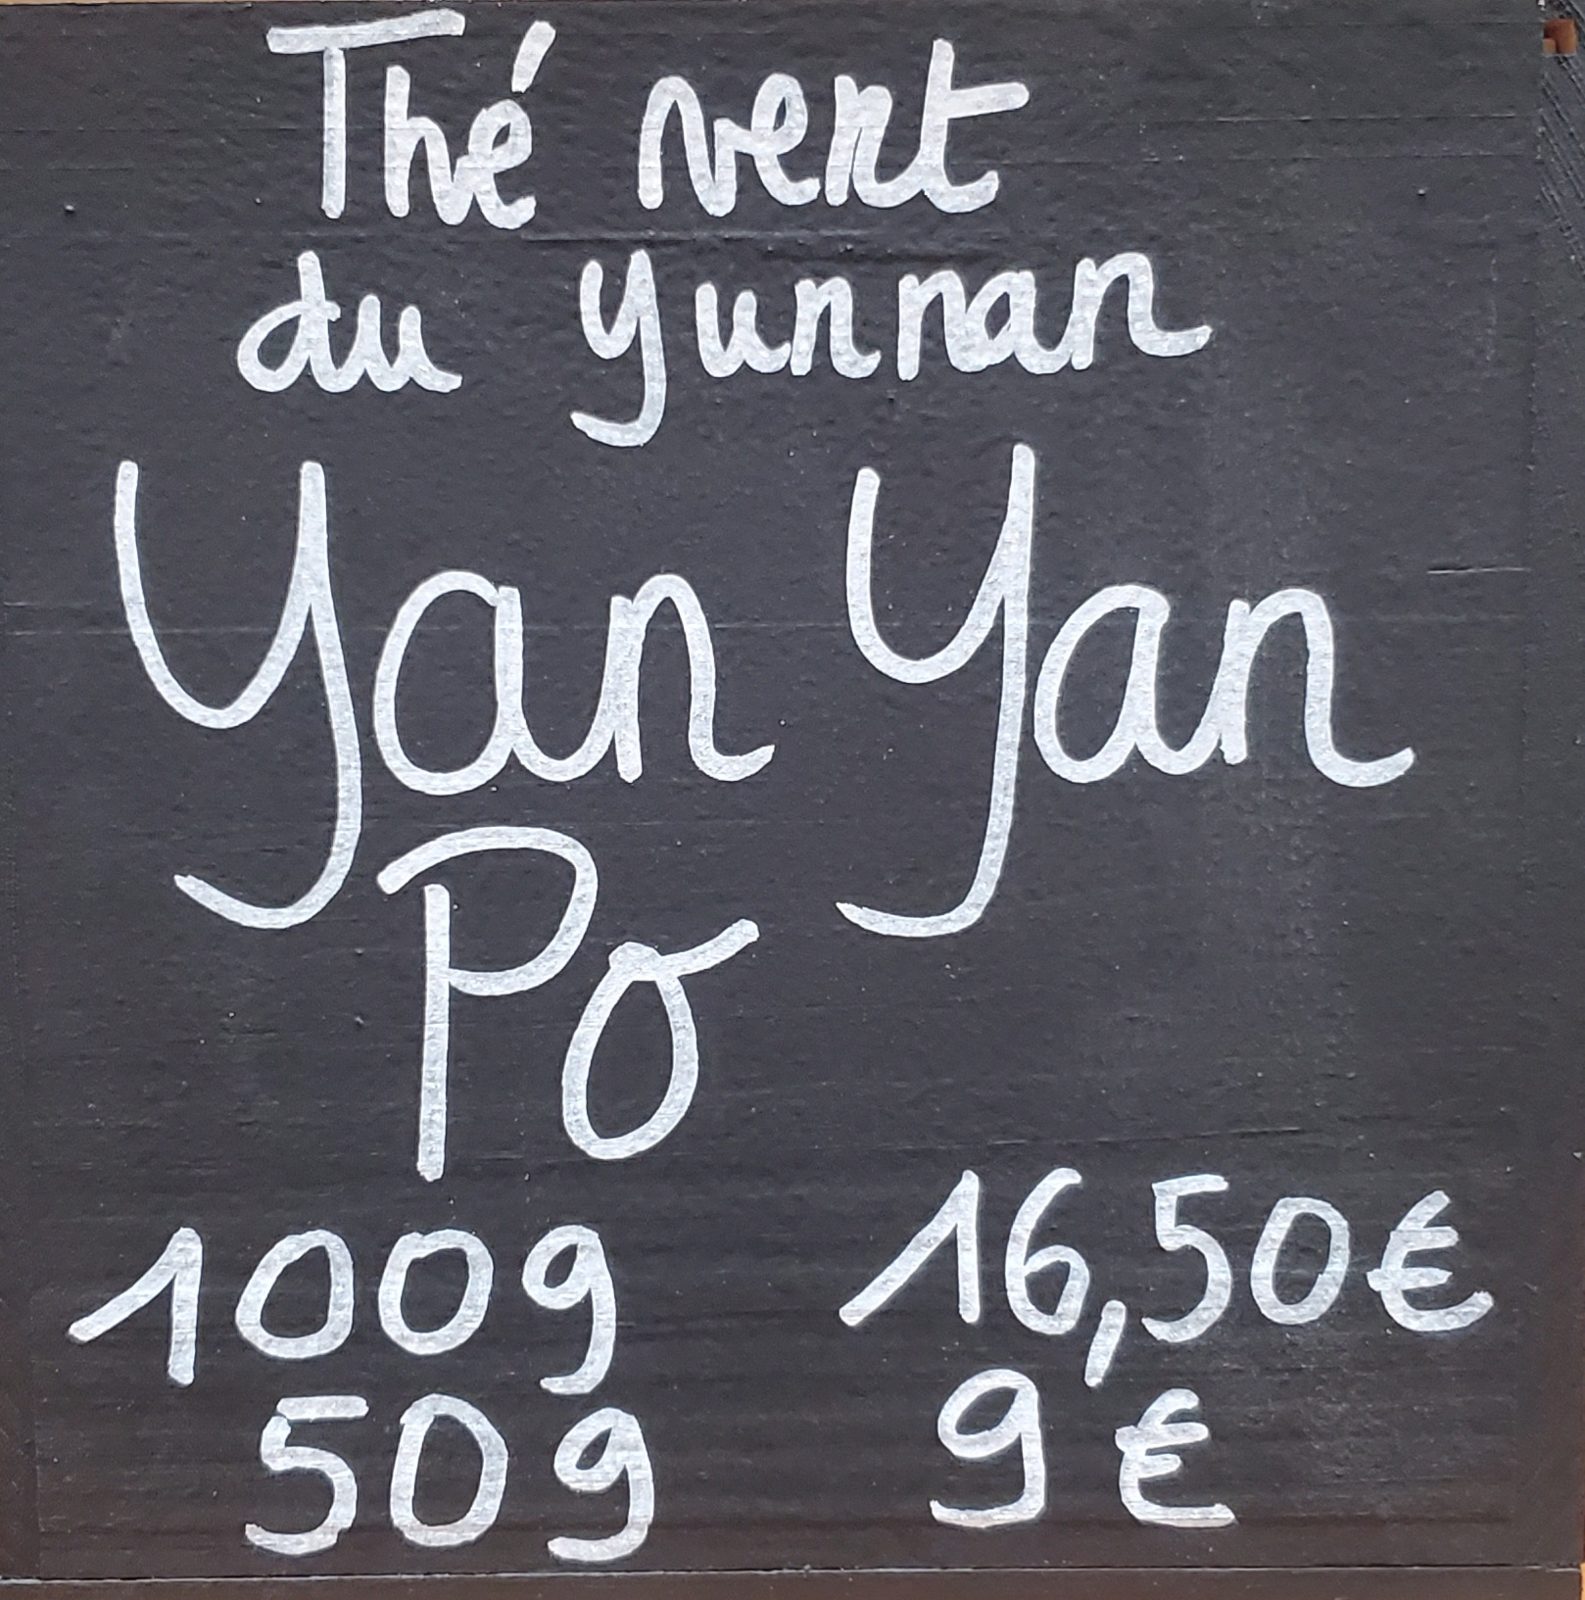 Thé vert
du Yunnan
Yan Yan
Po
100g 16,50€
50g 9€